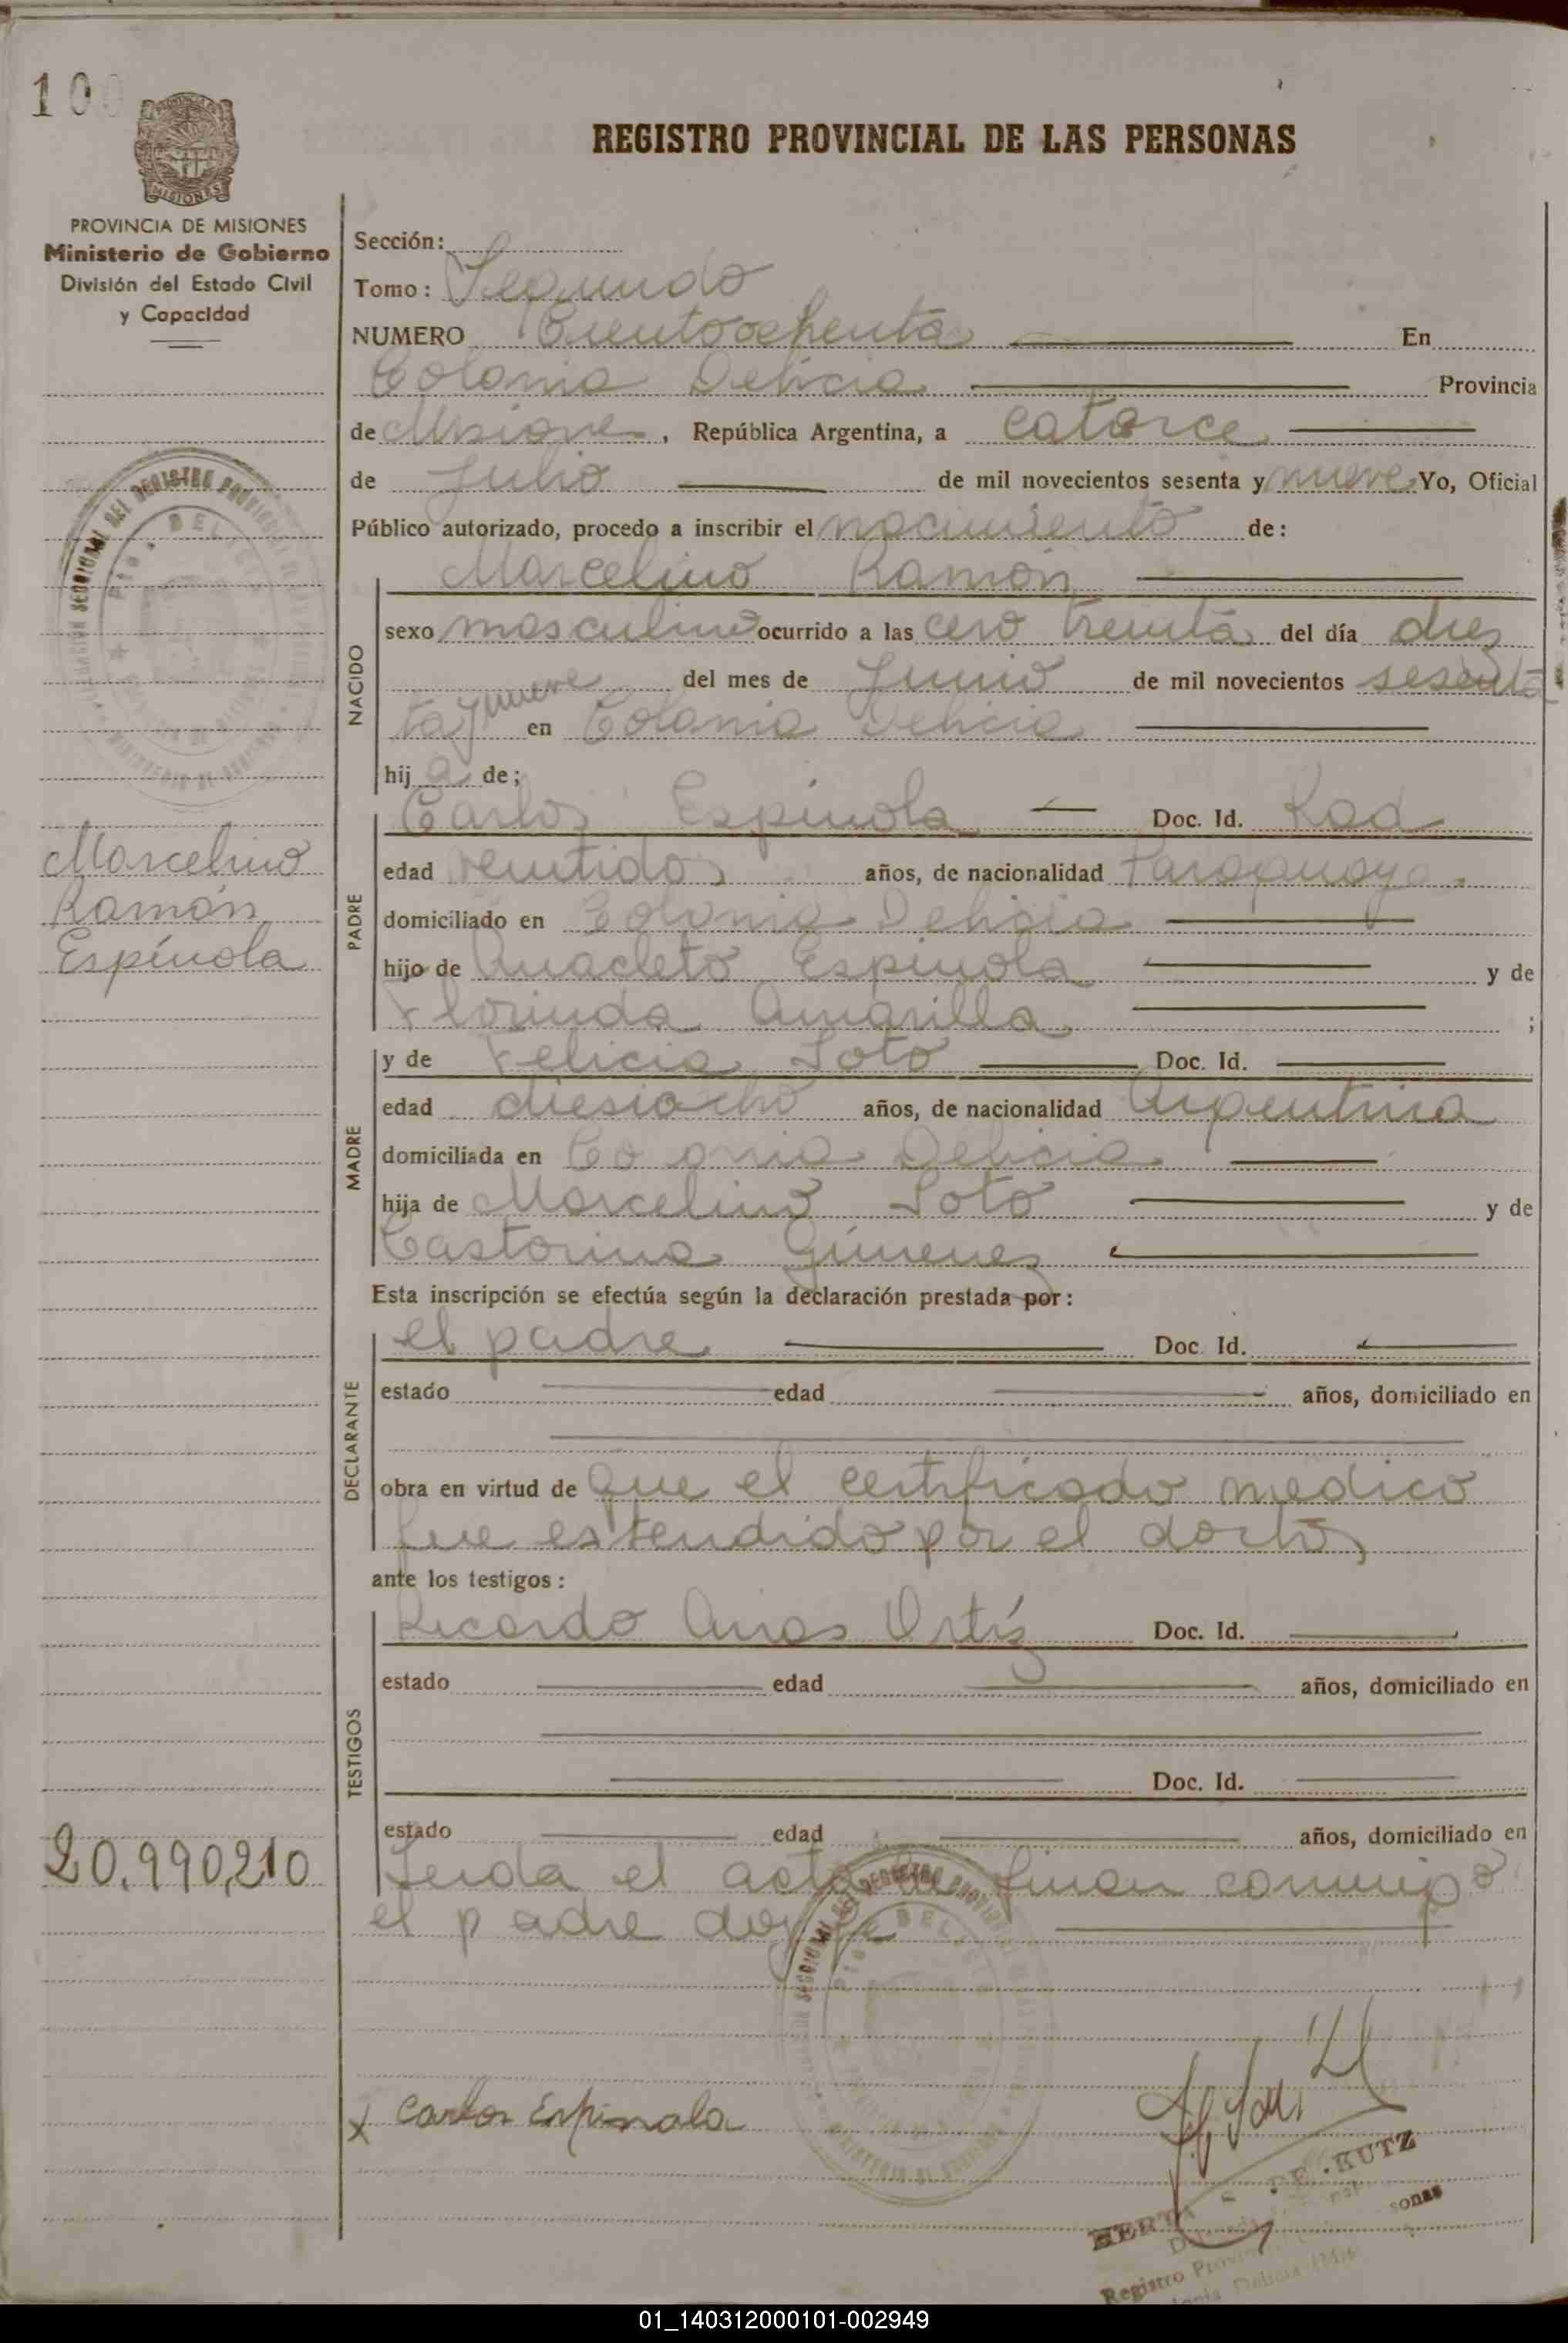 100
REGISTRO PROVINCIAL DE LAS PERSONAS
MISIONES
PROVINCIA DE MISIONES
Ministerio de Gobierno
División del Estado Civil
y Capacidad
Sección:
Tomo: Segundo
NUMERO Cientoochenta En
Colonia Delicia Provincia
de Misiones, República Argentina, a catorce
de Julio de mil novecientos sesenta y nueve Yo, Oficial
Público autorizado, procedo a inscribir el nacimiento de:
Marcelino Ramón
NACIDO
sexo masculino ocurrido a las cero treinta del día diez
del mes de Junio de mil novecientos sesenta
ta y nueve en Colonia Delicia
hij a de;
PADRE
Carlos Espinola Doc. Id.
edad ventidos años, de nacionalidad Paraguaya.
domiciliado en Colonia Delicia
hijo de Anacleto Espinola y de
Florinda Amarilla ;
Marcelino
Ramón
Espínola
MADRE
y de Felicia Soto Doc. Id.
edad diesiocho años, de nacionalidad Argentina
domiciliada en Colonia Delicia
hija de Marcelino Soto y de
Castorina Gimenez
Esta inscripción se efectúa según la declaración prestada por:
DECLARANTE
el padre Doc. Id.
estado edad años, domiciliado en
obra en virtud de que el certificado medico
fue estendido por el doctor
ante los testigos:
TESTIGOS
Ricardo Arias Ortíz Doc. Id.
estado edad años, domiciliado en
Doc. Id.
estado edad años, domiciliado en
20.990,210
Leida el acta la firman conmigo
el padre doy fe
x Carlos Espinola
HERT DE KUTZ
Registro Provin sonas
onia Delicia (Mis
01_140312000101-002949